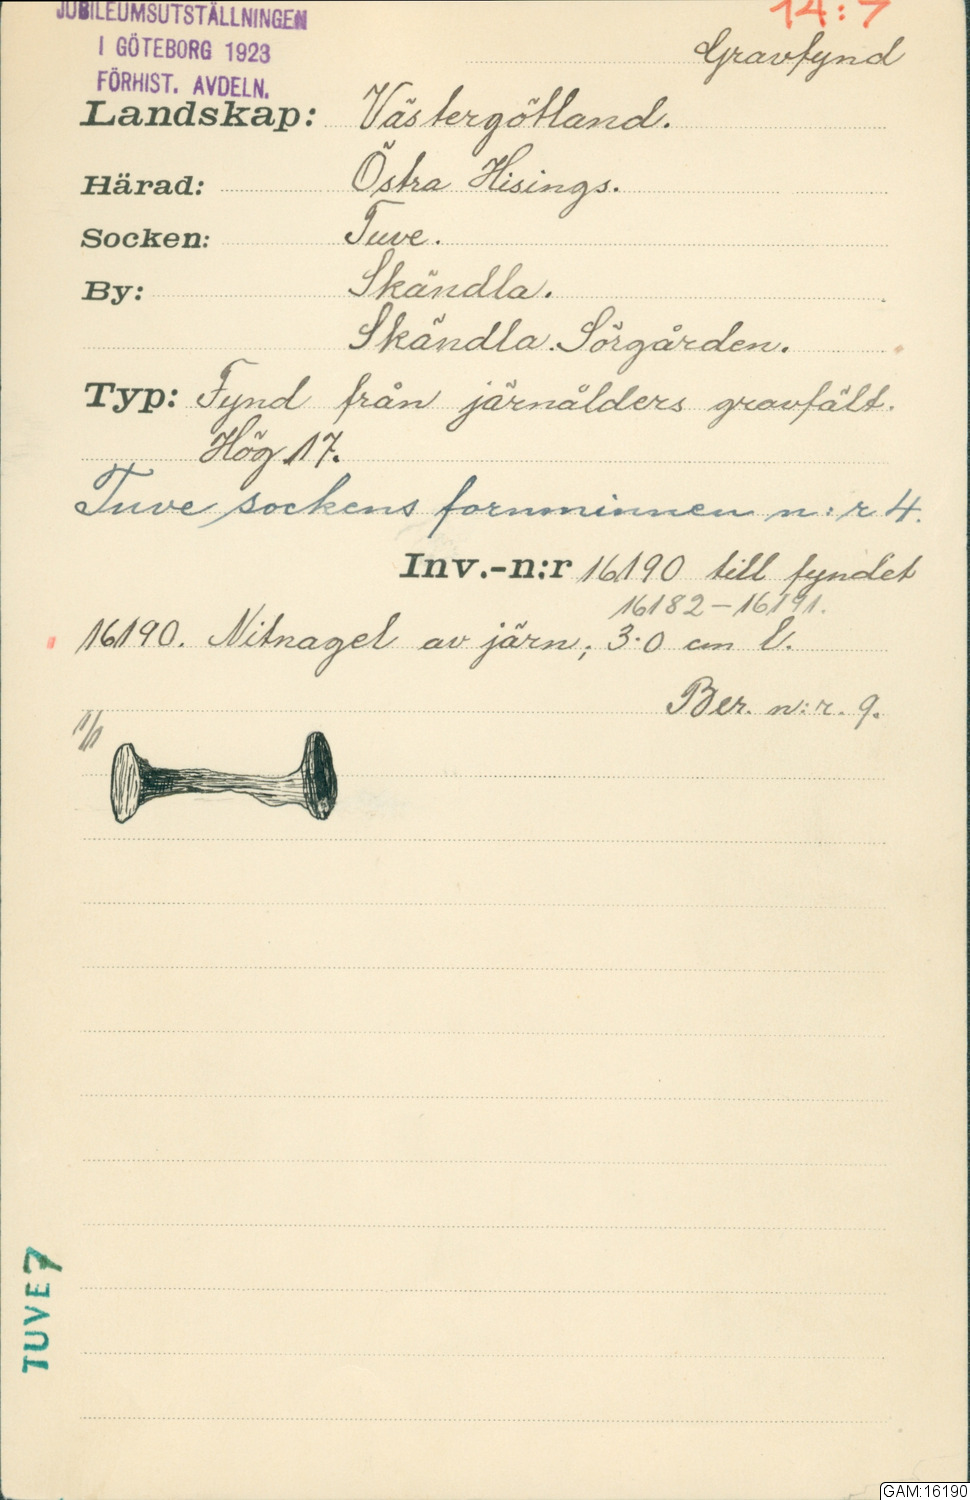 JUBILEUMSUTSTÄLLNINGEN
I GÖTEBORG 1923
FÖRHIST. AVDELN.
14:7
Gravfynd
Landskap: Västergötland.
Härad: Östra Hisings.
Socken: Tuve.
By: Skändla.
Skändla Sörgården.
Typ: Fynd från järnålders gravfält.
Hög 17.
Tuve sockens fornminnen n:r 4.
Inv.-n:r 16190 till fyndet
16182-16191.
16190. Nitnagel av järn; 3.0 cm l.
Ber. n:r. 9.
1/1
TUVE 7
GAM:16190